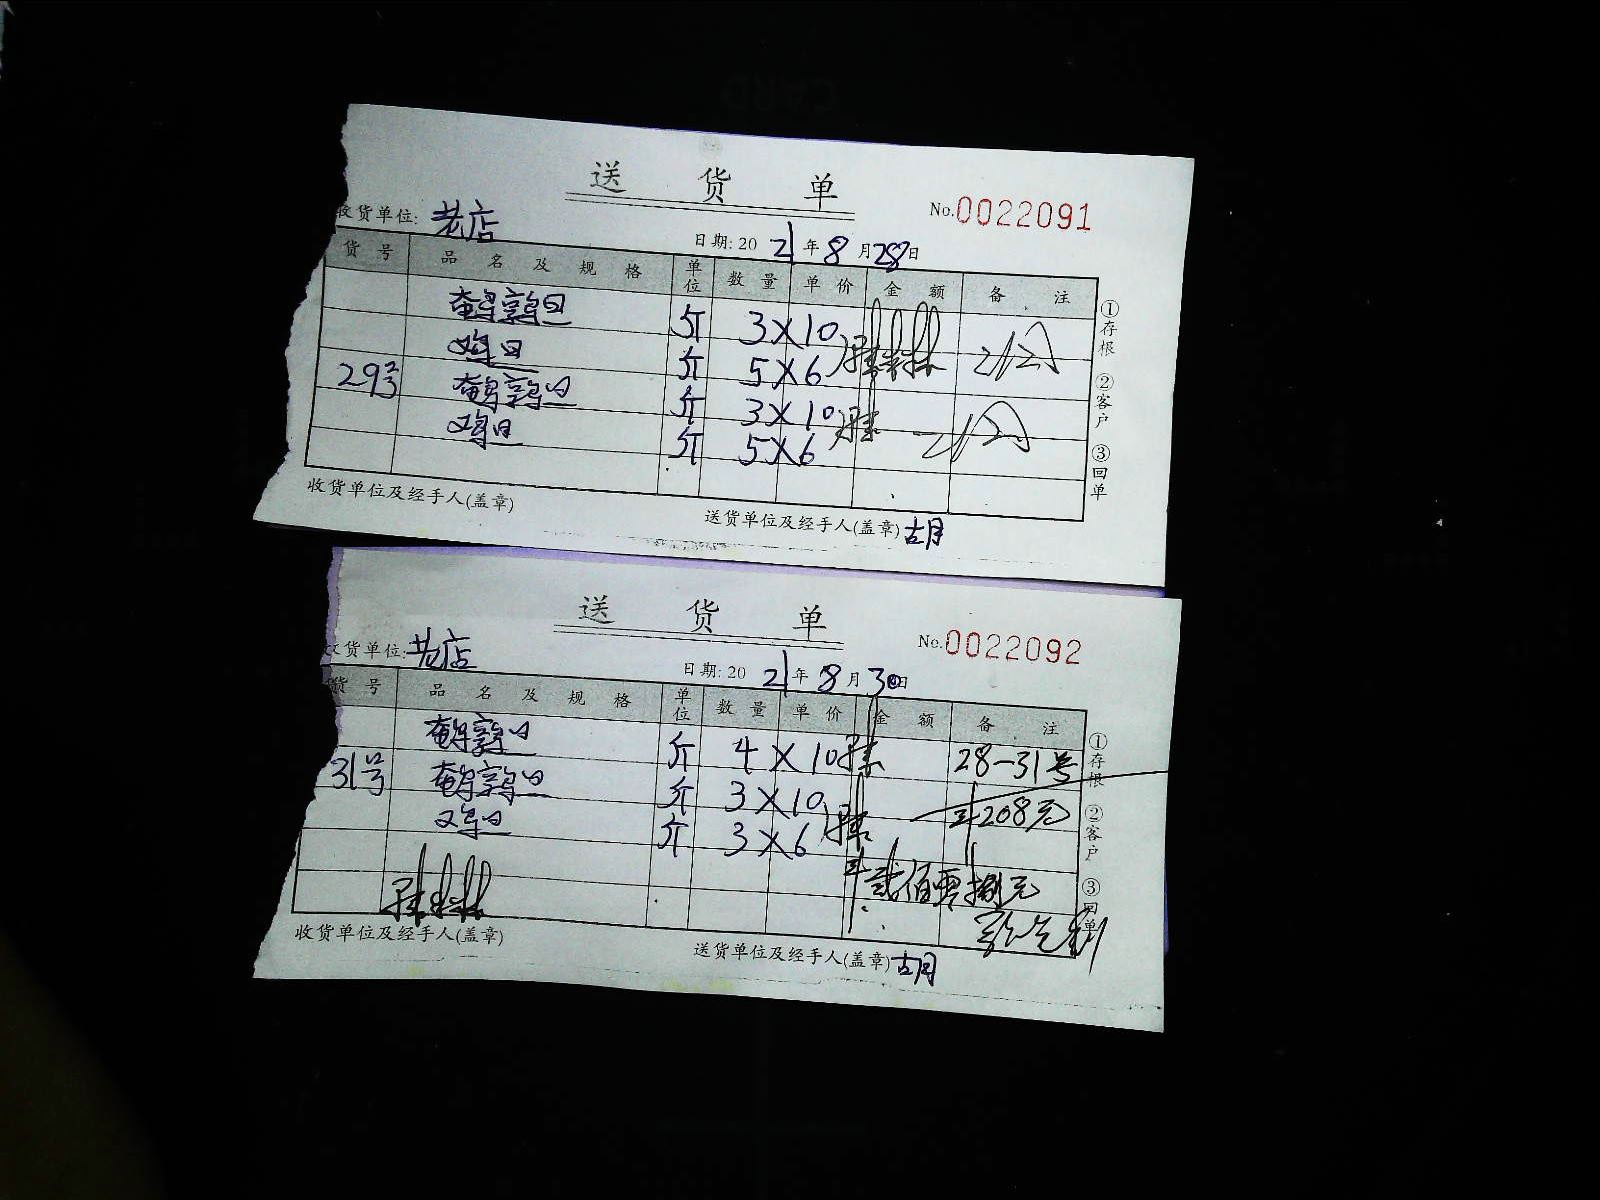 送 货 单
No.0022091
收货单位: 老店
日期: 2021年8月28日
货 号 品 名 及 规 格 单位 数 量 单 价 金 额 备 注
斤 3×10
斤 5×6
29号 斤 3×10
斤 5×6
①存根 ②客户 ③回单
收货单位及经手人(盖章)
送货单位及经手人(盖章) 胡
送 货 单
No.0022092
货单位: 老店
日期: 2021年8月30日
货 号 品 名 及 规 格 单位 数 量 单 价 金 额 备 注
斤 4×10 28-31号
31号 斤 3×10 208元
斤 3×6
贰佰零捌元
①存根 ②客户 ③回单
收货单位及经手人(盖章)
送货单位及经手人(盖章) 胡